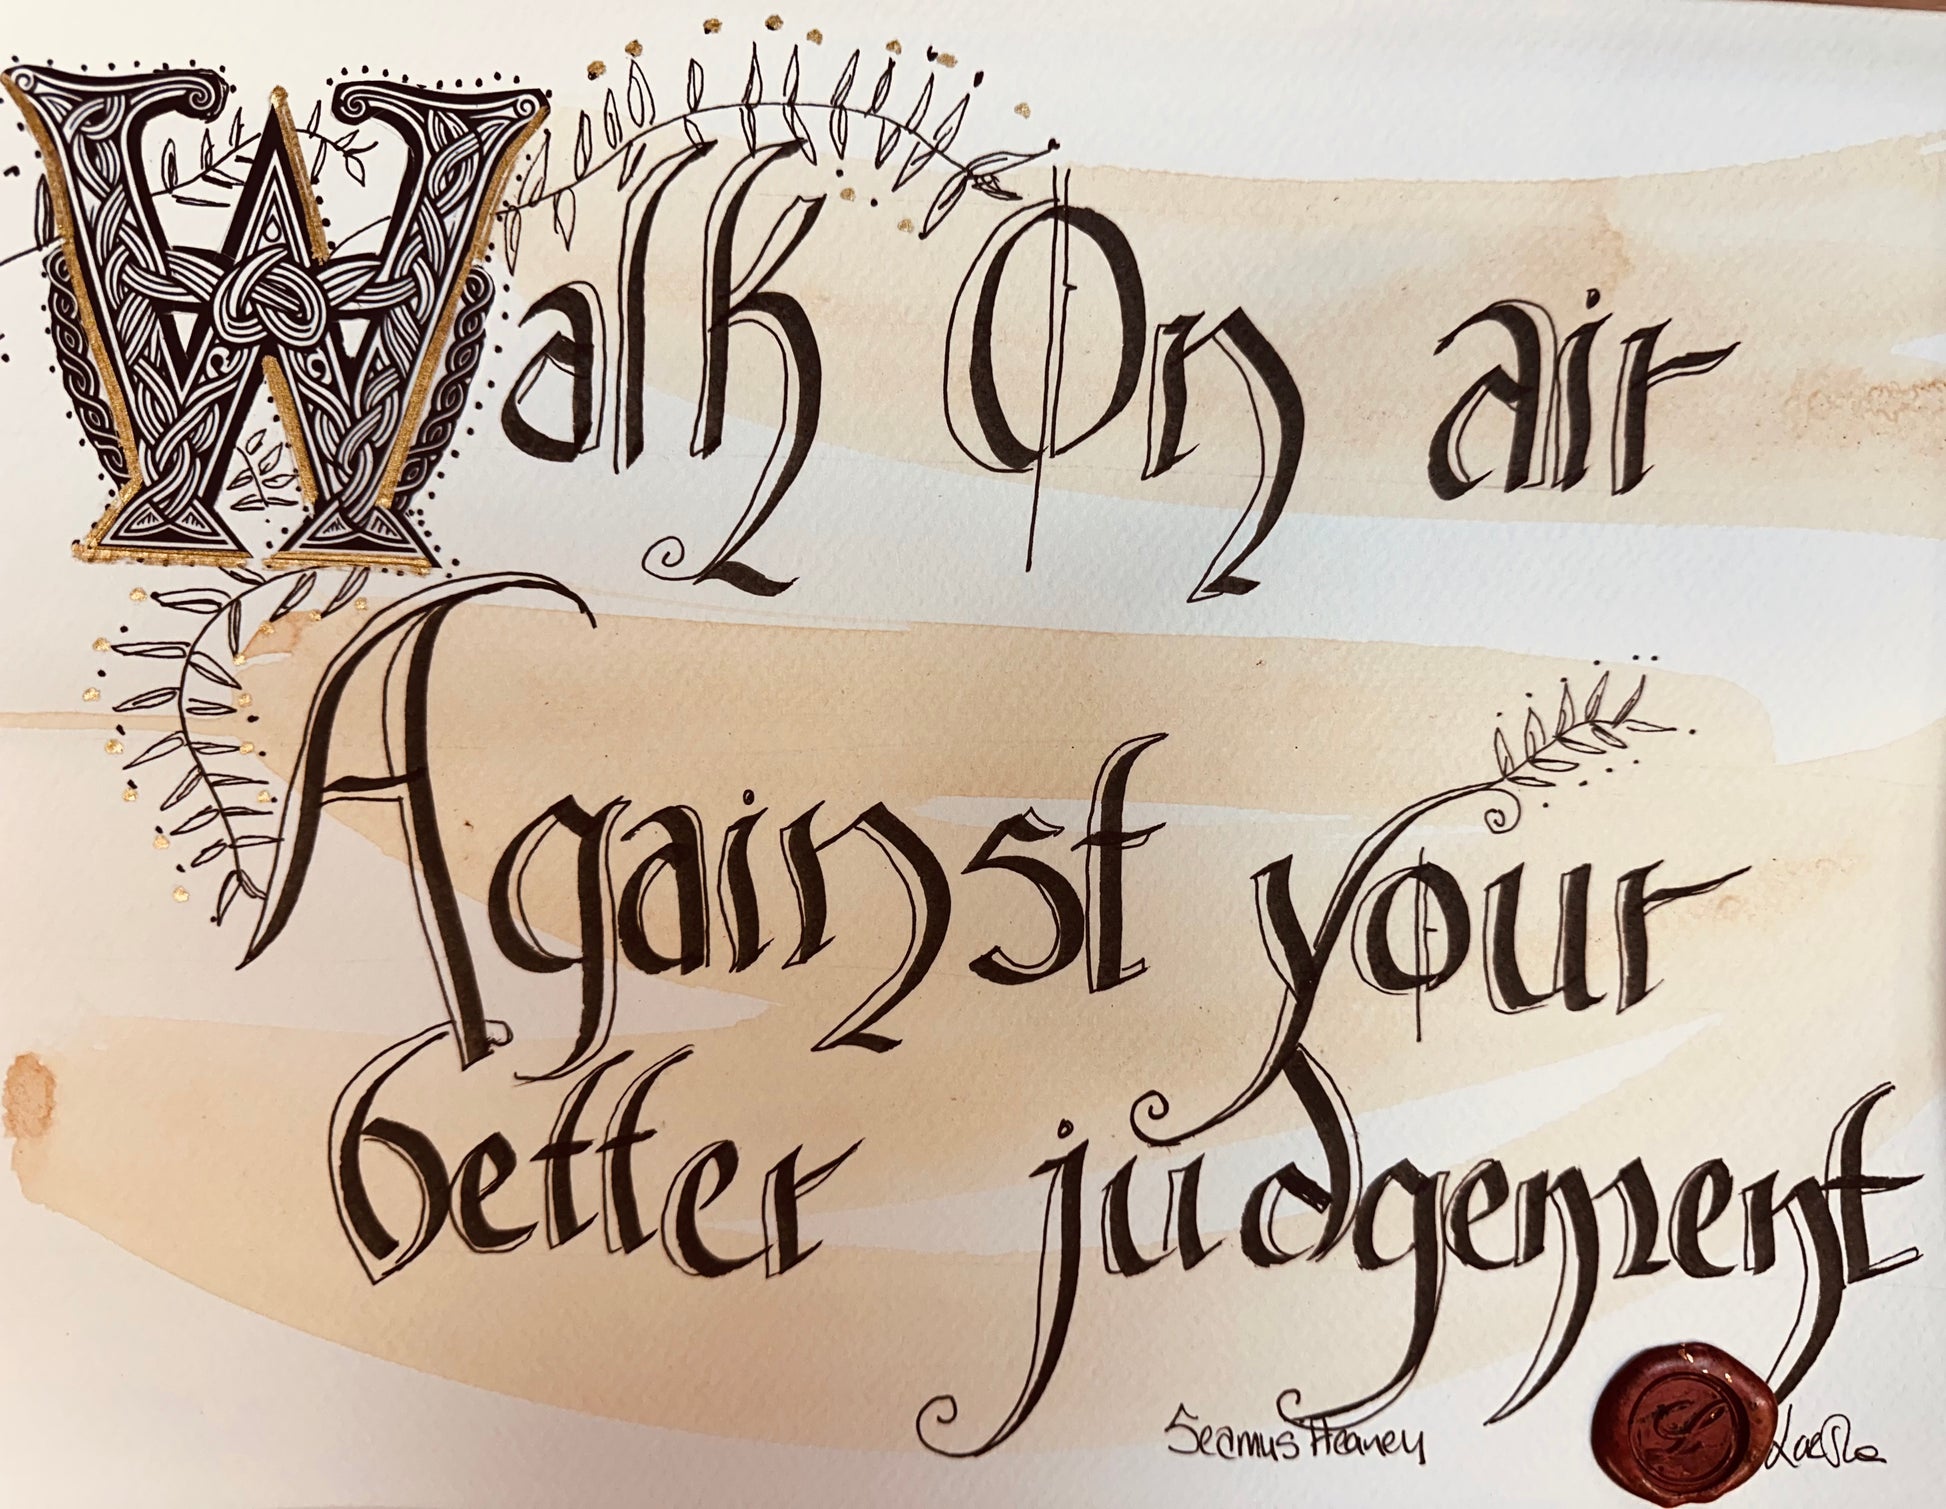 Walk On air
Against your
better judgement
Seamus Heaney